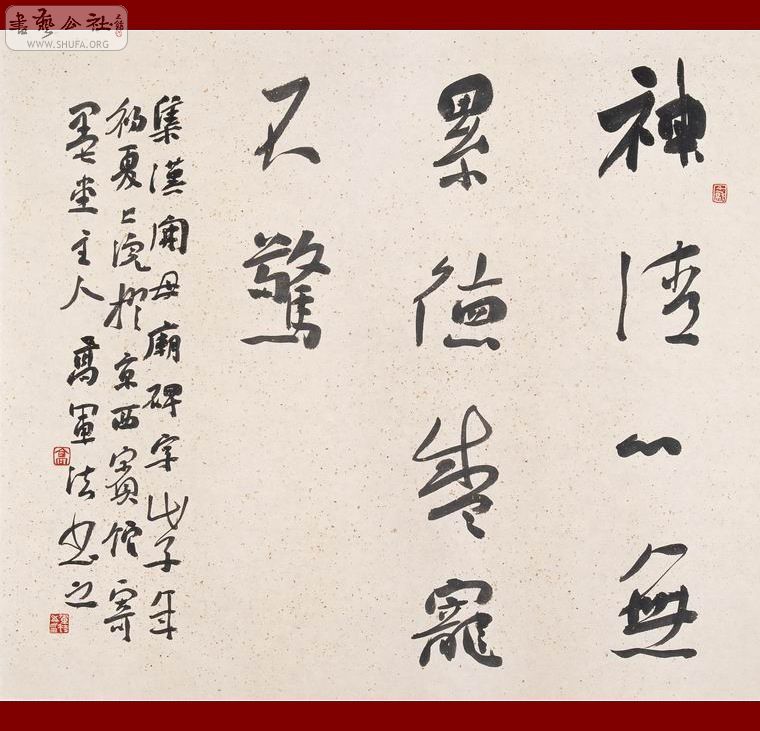 書藝公社
WWW.SHUFA.ORG
神清心無
累德盛寵
不驚
集漢開母廟碑字戊子年
初夏上浣於京西賓館寄
墨堂主人高軍法书之